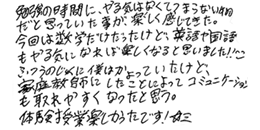 勉強の時間に、やる気はなくてつまらない時間
だと思っていた事が楽しく感じてきた。
今回は数学だけだったけど、英語や国語
もやる気になれば楽しくなると思いました!!
ふつうのじゅくに僕はかよっていたけど、
家庭教師にしたことによってコミュニケーション
も取れやすくなったと思う。
体験授業楽しかったです!